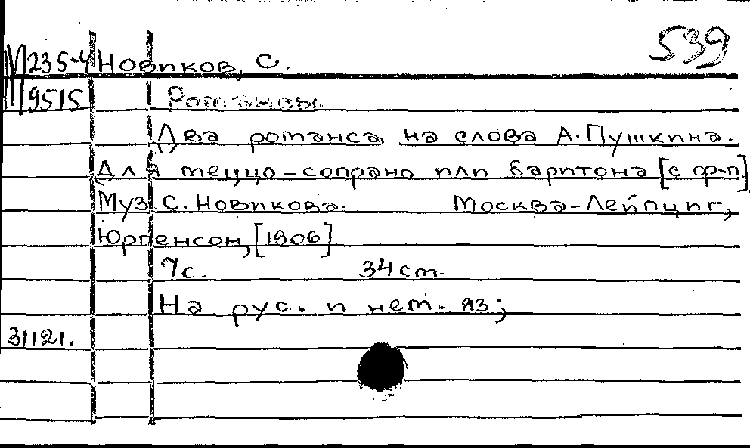 539
М235-4 Новиков, С.
М9515 Романсы.
Два романса на слова А.Пушкина.
Для меццо-сопрано или баритона [с ф-п]
Муз С. Новикова. Москва-Лейпциг,
Юргенсон, [1906]
7с. 34 см.
На рус. и нем. яз;
31121.